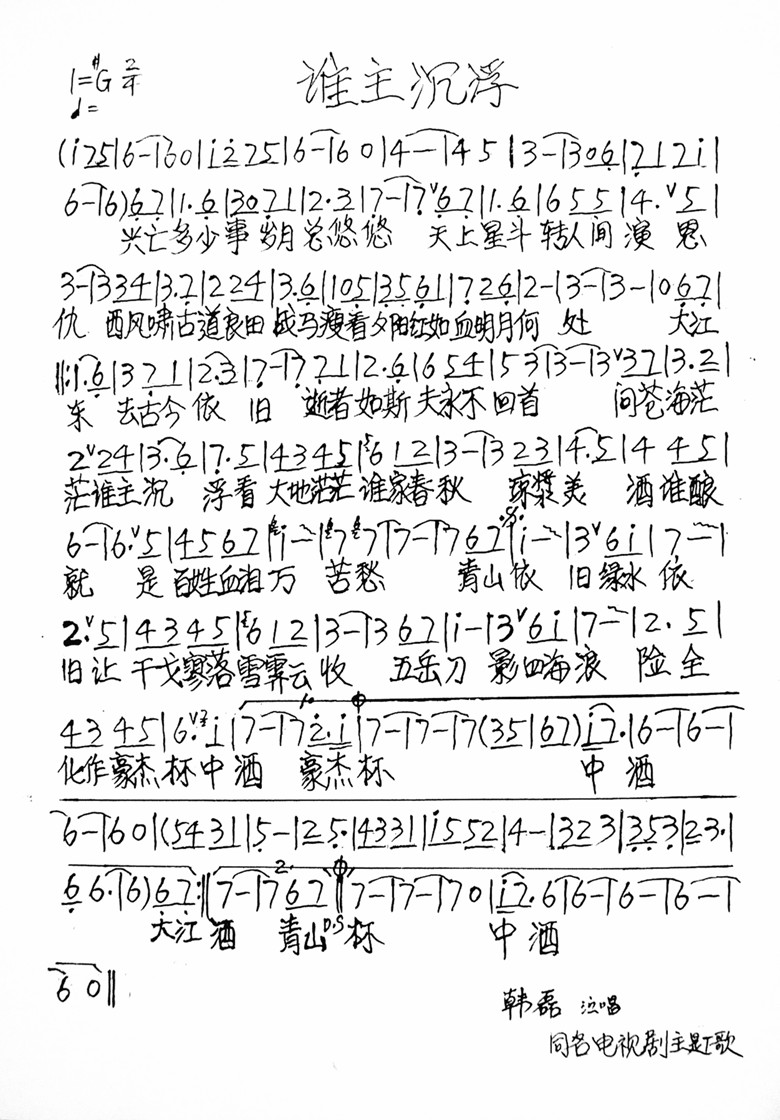 谁主沉浮
1=#G 2/4
♩=
(i 2 7 5|6-|6 0|i 2 7 5|6-|6 0|4-|4 5|3-|3 0 6|7 1 7 i|
6-|6) 6 7|1. 6|3 0 7 1|2. 3|7-|7 ᵛ6 7|1. 6|6 5 5|4. ᵛ5|
兴亡多少事 岁月总悠悠 天上星斗转人间 演 恩
3-|3 3 4|3. 7|2 2 4|3. 6|1 0 5|3 5 6 1|7 2 6|2-|3-|3-|0 6 7|
仇 西风啸古道良田 战马瘦看夕阳红如血明月何 处 大江
‖:1. 6|3 7 1|2. 3|7-|7 7 1|2. 6|6 5 4|5 3|3-|3 ᵛ3 7|3. 2|
东 去古今依 旧 逝者如斯夫永不回首 问苍海茫
2 ᵛ2 4|3. 6|7. 5|4 3 4 5|6 1 2|3-|3 2 3|4. 5|4 4 5|
茫谁主沉 浮看大地茫茫谁家春秋 琼浆美 酒谁酿
6-|6. ᵛ5|4 5 6 7|i-|7 7|7-|7 6 7|i-|3 ᵛ6 i|7-|
就 是百姓血泪万 苦愁 青山依 旧绿水依
2. ᵛ5|4 3 4 5|6 1 2|3-|3 6 7|i-|3 ᵛ6 i|7-|2. 5|
旧让干戈寥落雪霁云收 五岳刀 影四海浪 险全
4 3 4 5|6. ᵛ i|7-|7 2. i|7-|7-|7 (3 5|6 7) i 7.|6-|6-|
化作豪杰杯中酒 豪杰杯 中 酒
6-|6 0|(5 4 3 1|5-|2 5.|4 3 3 1|i 5 5 2|4-|3 2 3|3 5 3|2 3.|
6 6.|6) 6 7:‖7-|7 6 7‖7-|7-|7 0|i 7. 6|6-|6-|6-|
大江 酒 青山D.S杯 中 酒
6 0‖
韩磊 演唱
同名电视剧主题歌